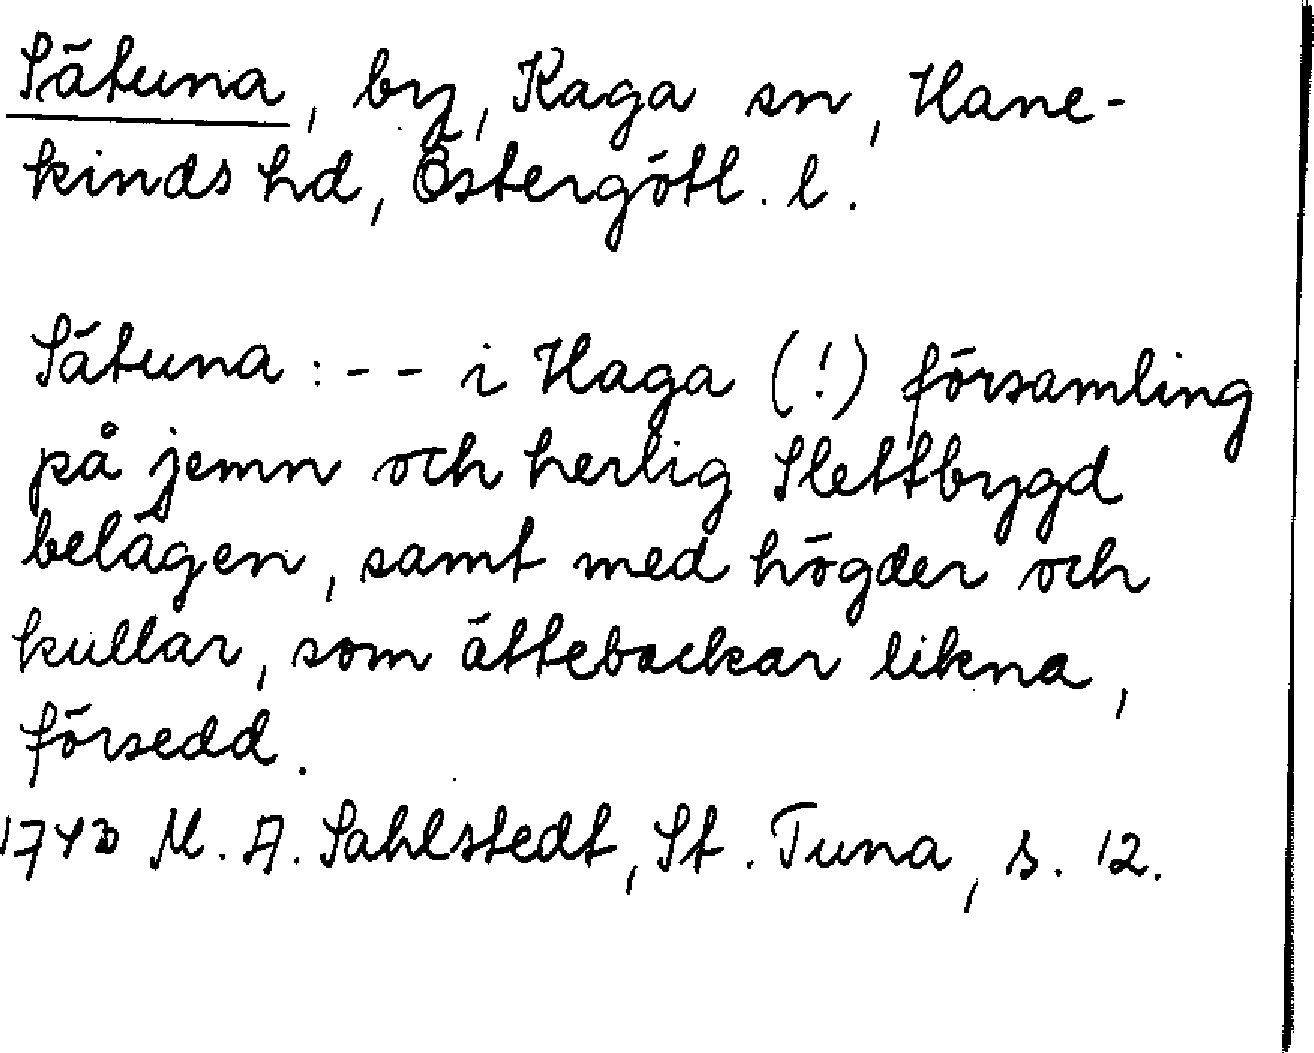 Sätuna, by, Kaga sn, Hane-
kinds hd, Östergötl. l.
Sätuna: -- i Haga (!) församling
på jemn och herlig Slettbygd
belägen, samt med högder och
kullar, som ättebackar likna,
försedd.
M. A. Sahlstedt, St. Tuna, s. 12.